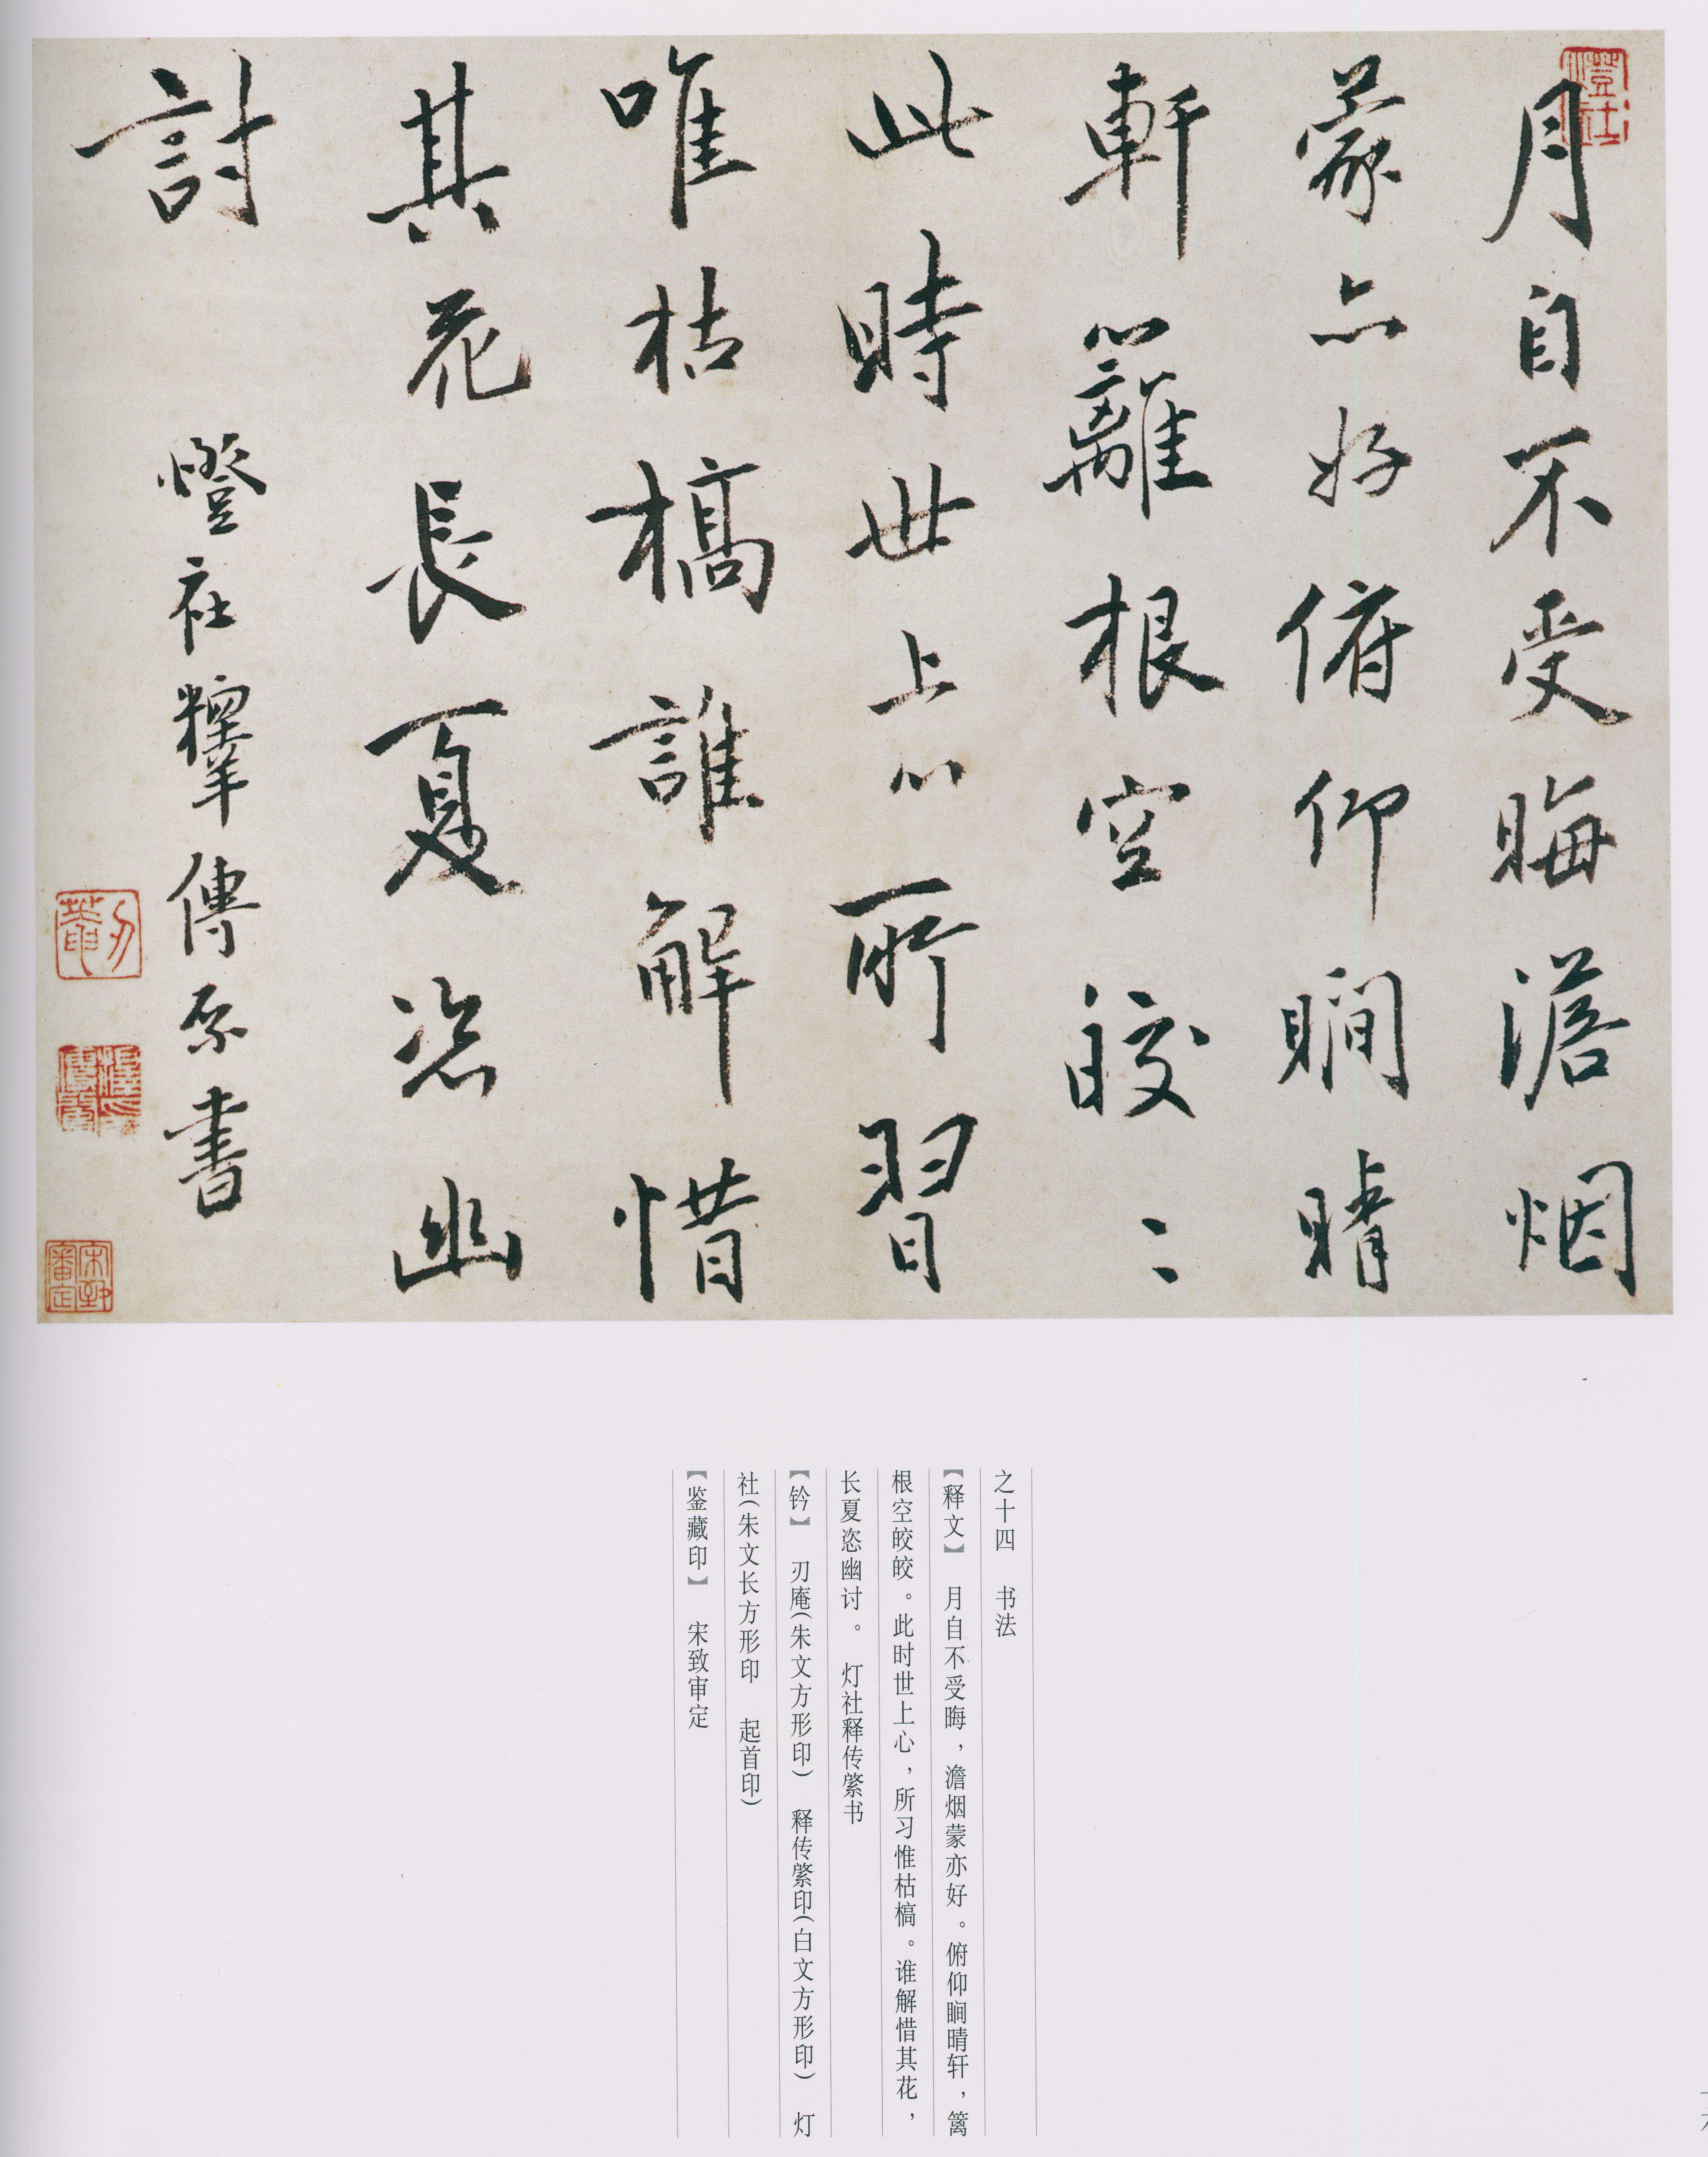 月自不受晦澹烟
蒙亦好俯仰瞷晴
軒籬根空皎〻
此時世上心所習
唯枯槁誰解惜
其花長夏恣幽
討
燈社釋傳綮書
之十四 书法
【释文】 月自不受晦，澹烟蒙亦好。俯仰瞷晴轩，篱
根空皎皎。此时世上心，所习惟枯槁。谁解惜其花，
长夏恣幽讨。 灯社释传綮书
【钤】 刃庵（朱文方形印） 释传綮印（白文方形印） 灯
社（朱文长方形印 起首印）
【鉴藏印】 宋致审定